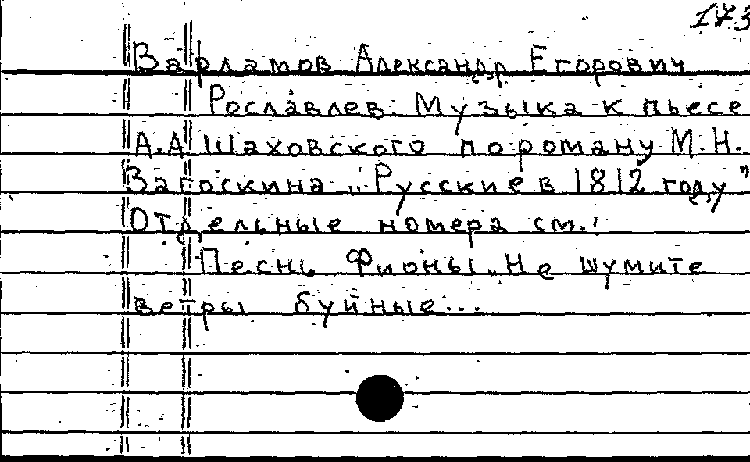 173
Варламов Александр Егорович
Рославлев. Музыка к пьесе
А.А Шаховского по роману М.Н.
Загоскина „Русские в 1812 году"
Отдельные номера см.:
Песнь Фионы „Не шумите
ветры буйные...